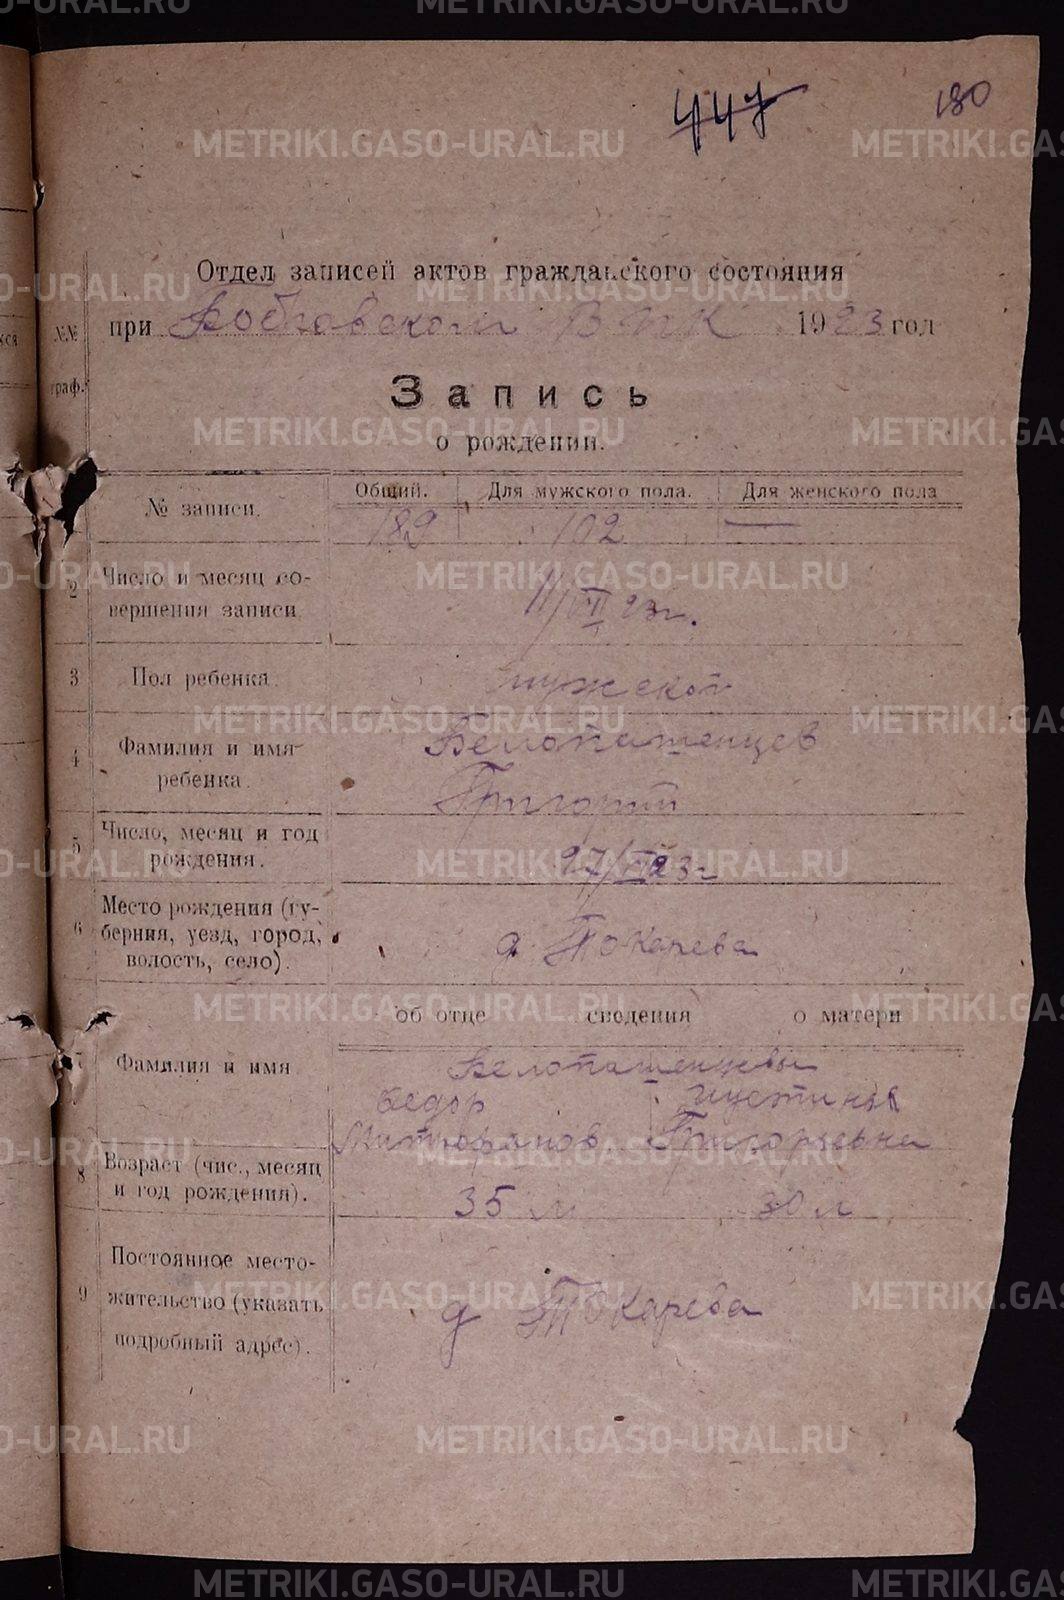 447 180
Отдел записей актов гражданского состояния
№№ при Бобровском ВИК 1923 год
граф.
Запись
о рождении.
№ записи. Общий. Для мужского пола. Для женского пола
189 102 —
2 Число и месяц со-
вершения записи 11/VII 23г.
3 Пол ребенка. мужской
4 Фамилия и имя Белопашенцев
ребенка. Григорий
5 Число, месяц и год
рождения. 27/ 23г
6 Место рождения (гу-
берния, уезд, город,
волость, село). д. Токарева
об отце сведения о матери
7 Фамилия и имя Белопашенцевы
Федор Иустинья
Митрофанов Григорьевна
8 Возраст (чис., месяц
и год рождения). 35 л 30 л
9 Постоянное место-
жительство (указать
подробный адрес). д Токарева
METRIKI.GASO-URAL.RU